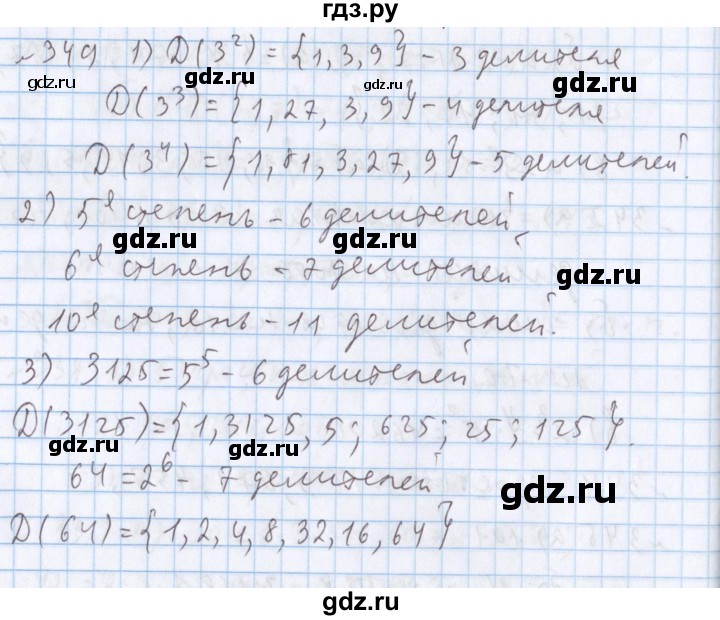 гдз.ру
№349 1) D(3²) = {1, 3, 9} - 3 делителя
gdz.ru gdz.ru gdz.ru
D(3³) = {1, 27, 3, 9} - 4 делителя
D(3⁴) = {1, 81, 3, 27, 9} - 5 делителей.
2) 5я степень - 6 делителей
gdz.ru gdz.ru
6я степень - 7 делителей
gdz.ru
10я степень - 11 делителей.
3) 3125 = 5⁵ - 6 делителей
gdz.ru
D(3125) = {1, 3125, 5; 625; 25; 125}.
gdz.ru gdz.ru
64 = 2⁶ - 7 делителей
gdz.ru
D(64) = {1, 2, 4, 8, 32, 16, 64}
gdz.ru